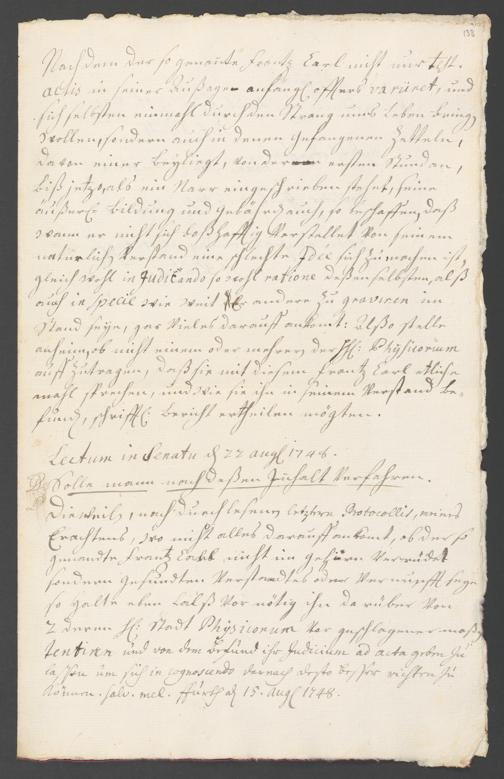 138
Nach dem der so genannte Frantz Carl nicht nur test.
actis in seiner Außage anfangl. offters variiret, und
sich selbsten einmahl durch den Strang ums Leben bring
wollen, sondern auch in denen gefangenen Zetteln,
davon einer beygliegt, von der ersten Stund an,
biß jetzo, als ein Narr eingeschrieben stehet, seine
äußerl. bildung und gebährd auch, so beschaffen, daß
wann er nicht sich boßhafftig verstellet von seinem
natürlich Verstand eine schlechte Idee sich zu machen ist,
gleich wohl in Judicando so wohl ratione deßen selbsten, alß
auch in specie wie weit Er andere zu graviren im
Stand seye, gar vieles darauff ankomt: Alßo stelle
anheim, ob nicht einem oder mehrer der H: Physicorum
auffzutragen, daß sie mit diesem Frantz Carl etliche
mahl sprechen, und wie sie ihn in seinem Verstand be-
fund, schrifftl: bericht ertheilen mögten.
Lectum in Senatu d 22 augl 1748.
Solle mann nach deßen Inhalt verfahren.
Dieweil, nach durchlesenen letztern Protocollis, meines
Erachtens, wo nicht alles darauff ankomt, ob der so
genandte Frantz Carl, nicht im gehirn verrücket
sondern gesundten Verstandtes oder Vernunfft seye
so halte eben falß vor nötig ihn darüber von
2 deren H: Stadt Physicorum vor geschlagener maß
tentiren und von dem befund ihr Judicium ad acta geben zu
laßen um sich in cognoscendo darnach desto beßer richten zu
können. salv. mel. fürth d 15. Augl 1748.